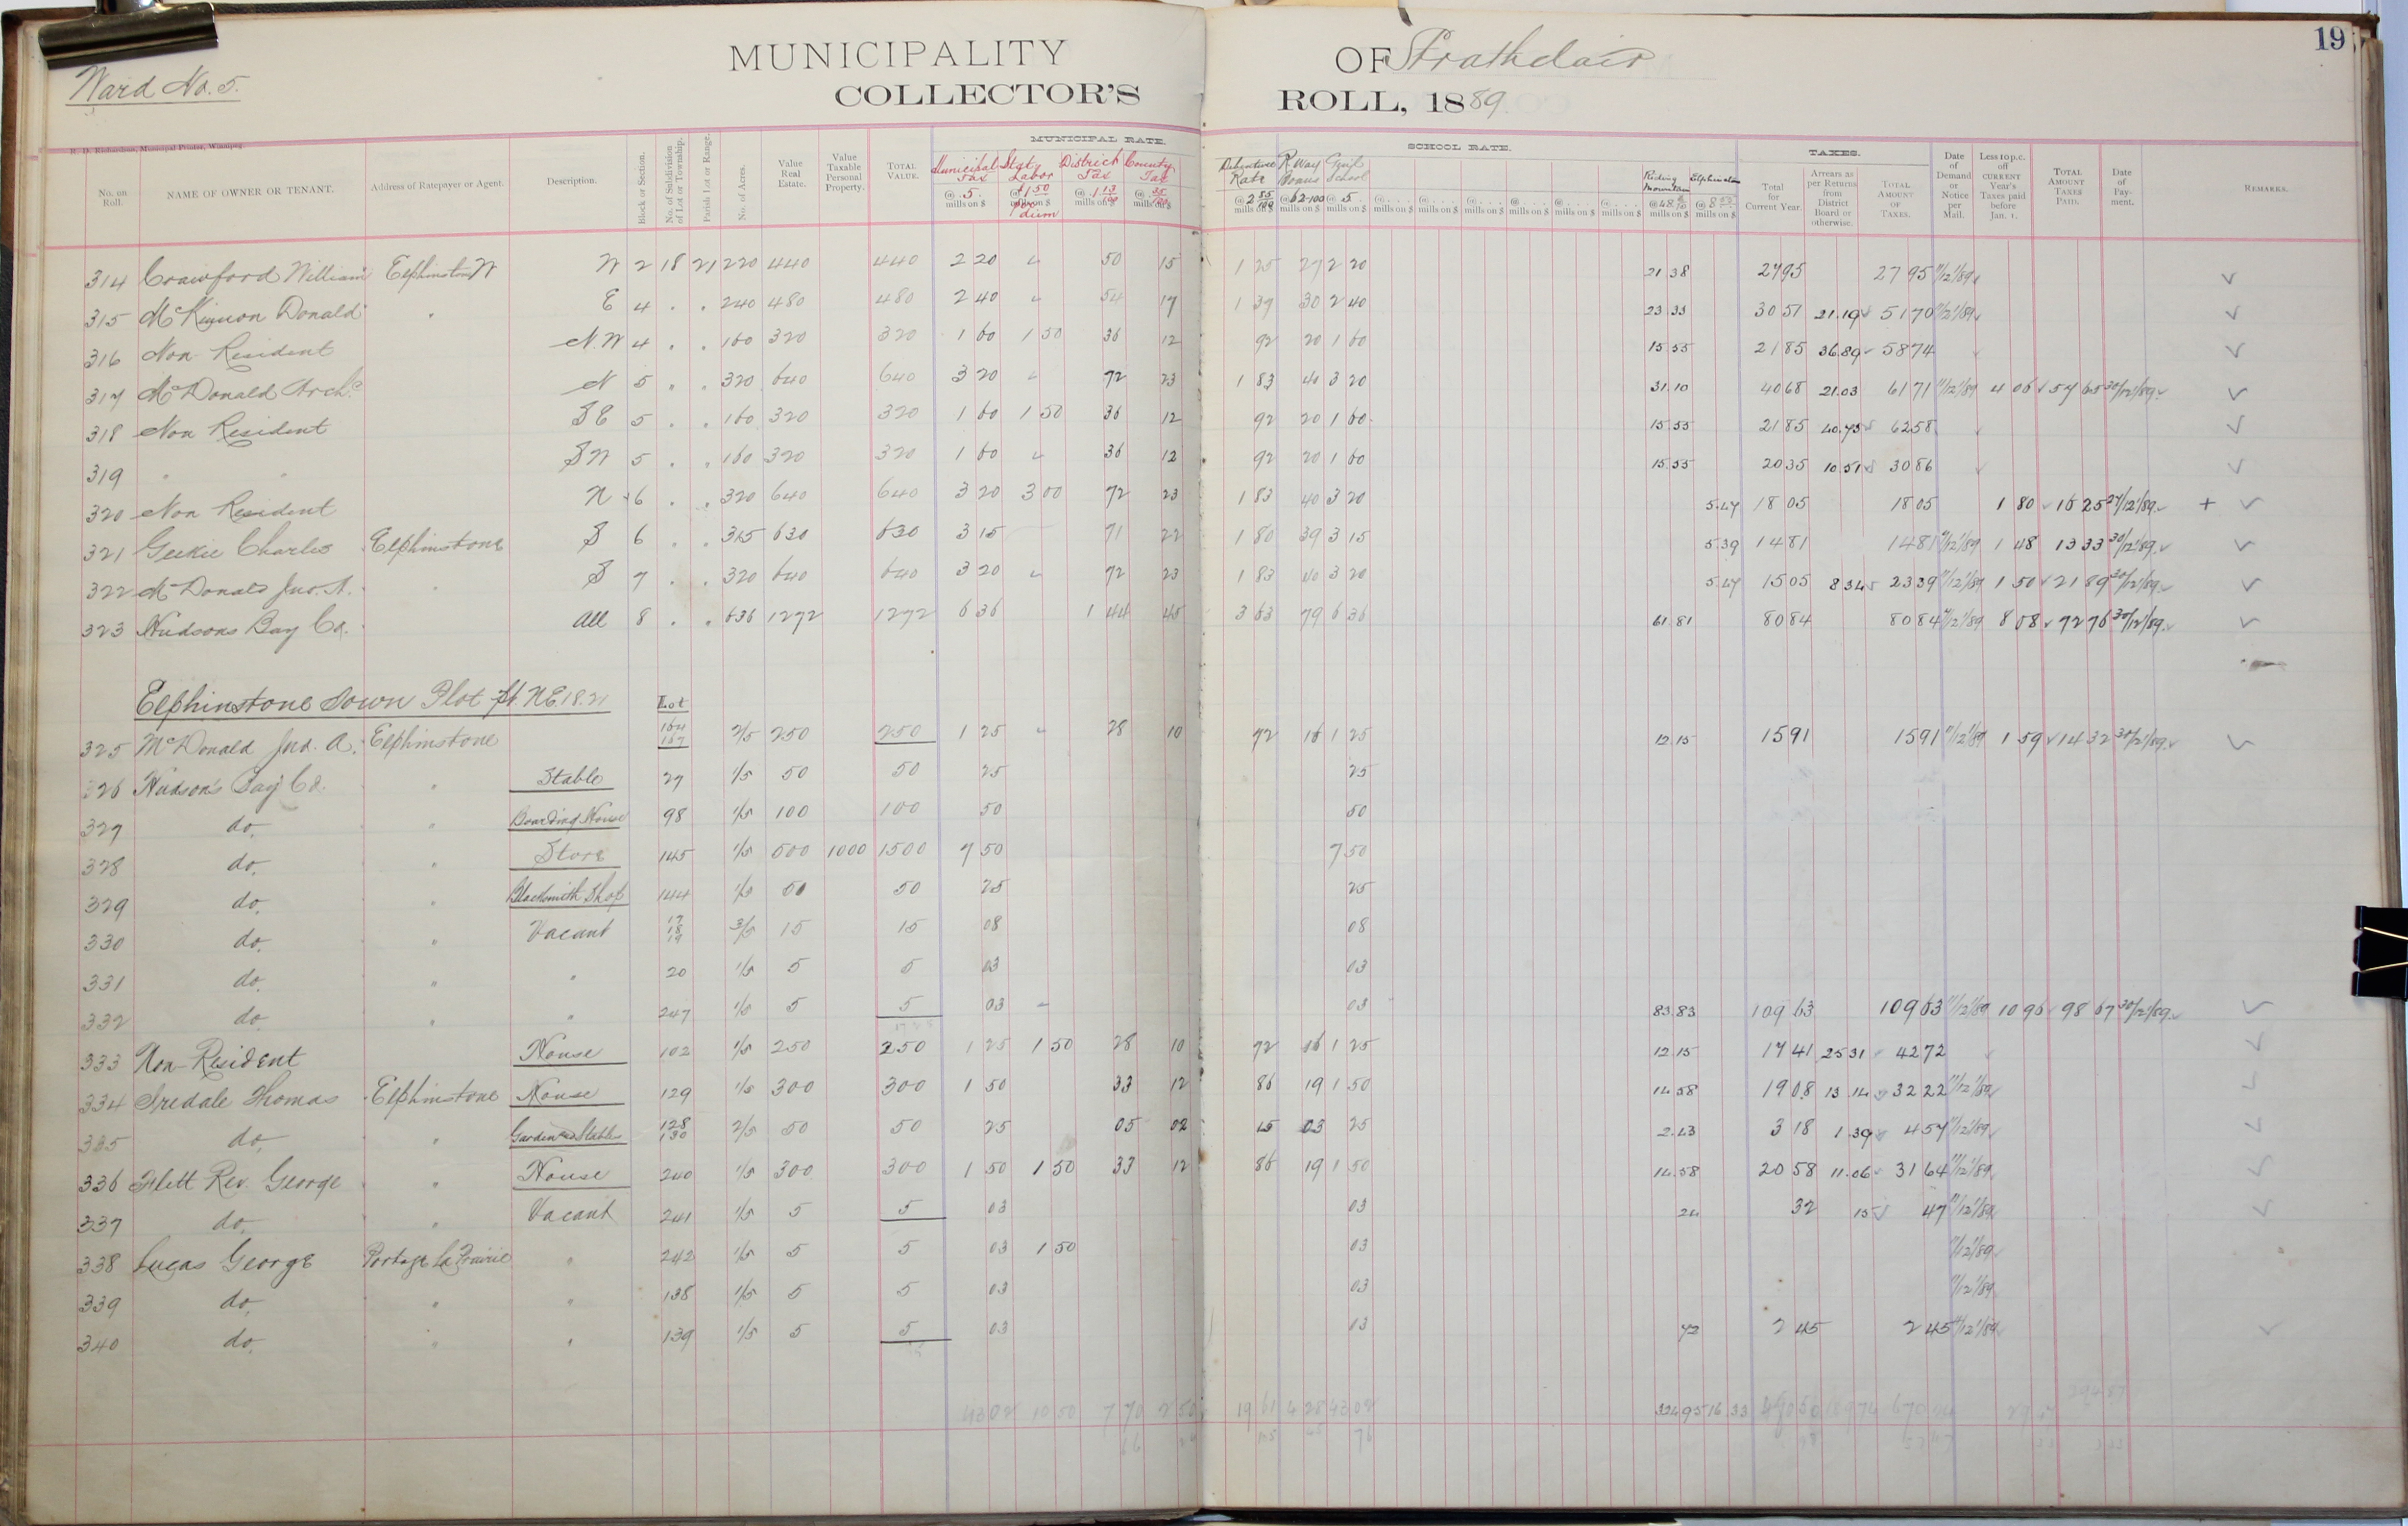 Ward No. 5.
MUNICIPALITY OF Strathclair 19
COLLECTOR'S ROLL, 1889
R. D. Richardson, Municipal Printer, Winnipeg.
MUNICIPAL RATE. SCHOOL RATE. TAXES.
No. on Roll. NAME OF OWNER OR TENANT. Address of Ratepayer or Agent. Description. Block or Section. No. of Subdivision of Lot or Township. Parish Lot or Range. No. of Acres. Value Real Estate. Value Taxable Personal Property. TOTAL VALUE. Municipal Tax @ 5. mills on $ Staty Labor @ 1 50 per dium District Tax @ 1 13/100 mills on $ County Tax @ 35/100 mills on $ Debenture Rate @ 2 85/100 mills on $ R. Way Bonus @ 62-100 mills on $ Genl School @ 5. mills on $ Riding Mountain @ 48 6/10 mills on $ Elphinstone @ 8 mills on $ Total for Current Year. Arrears as per Returns from District Board or otherwise. TOTAL AMOUNT OF TAXES. Date of Demand or Notice per Mail. Less 10 p.c. off CURRENT Year's Taxes paid before Jan. 1. TOTAL AMOUNT TAXES PAID. Date of Payment. REMARKS.
314 Crawford William Elphinstone W 2 18 21 220 440 440 2 20 " 50 15 1 25 27 2 20 21 38 27 95 27 95 11/12/89
315 McKinnon Donald " E 4 . . 240 480 480 2 40 " 54 17 1 37 30 2 40 23 33 30 51 21.19 51 70 11/12/89
316 Non Resident N.W 4 . . 160 320 320 1 60 1 50 36 12 92 20 1 60 15 55 21 85 36.89 58 74
317 McDonald Archd N 5 " . 320 640 640 3 20 " 72 23 1 83 40 3 20 31.10 40 68 21.03 61 71 11/12/89 4 06 57 65 30/12/89
318 Non Resident S E 5 . . 160 320 320 1 60 1 50 36 12 92 20 1 60 15 55 21 85 40.73 62 58
319 " " S W 5 . . 160 320 320 1 60 " 36 12 92 20 1 60 15.55 20 35 10.51 30 86
320 Non Resident N 6 . . 320 640 640 3 20 3 00 72 23 1 83 40 3 20 5.47 18 05 18 05 1 80 16 25 27/12/89 +
321 Geekie Charles Elphinstone S 6 . . 315 630 630 3 15 71 22 1 80 39 3 15 5.39 14 81 14 81 11/12/89 1 48 13 33 30/12/89
322 McDonald Jno. A. " S 7 . . 320 640 640 3 20 " 72 23 1 83 40 3 20 5.47 15 05 8 34 23 39 11/12/89 1 50 21 89 30/12/89
323 Hudsons Bay Co. All 8 . . 636 1272 1272 6 36 1 44 45 3 63 79 6 36 61.81 80 84 80 84 11/12/89 8 08 72 76 30/12/89
Elphinstone Town Plot pt. N.E. 18.21 Lot
325 McDonald Jno. A. Elphinstone 164 167 2/5 250 250 1 25 " 28 10 72 16 1 25 12.15 15 91 15 91 11/12/89 1 59 14 32 30/12/89
326 Hudson's Bay Co. " Stable 27 1/5 50 50 25 25
327 do. " Boarding House 98 1/5 100 100 50 50
328 do. " Store 145 1/5 500 1000 1500 7 50 7 50
329 do. " Blacksmith Shop 144 1/5 50 50 25 25
330 do. " Vacant 17 18 19 3/5 15 15 08 08
331 do. " " 20 1/5 5 5 03 03
332 do. " " 247 1/5 5 5 03 03 83.83 109 63 109 63 11/12/89 10 96 98 67 30/12/89
333 Non-Resident House 102 1/5 250 250 1 25 1 50 28 10 72 16 1 25 12 15 17 41 25 31 42 72
334 Iredale Thomas Elphinstone House 129 1/5 300 300 1 50 33 12 86 19 1 50 14 58 19 08 13 14 32 22 11/12/89
335 do. " Garden and Stables 128 130 2/5 50 50 25 05 02 15 03 25 2.43 3 18 1.39 4 57 11/12/89
336 Flett Rev. George " House 240 1/5 300 300 1 50 1 50 33 12 86 19 1 50 14.58 20 58 11.06 31 64 11/12/89
337 do. " Vacant 241 1/5 5 5 03 03 24 32 15 47 11/12/89
338 Lucas George Portage La Prairie " 242 1/5 5 5 03 1 50 03 11/12/89
339 do. " " 138 1/5 5 5 03 03 11/12/89
340 do. " " 139 1/5 5 5 03 03 72 2 45 2 45 11/12/89
43 02 10 50 7 70 2 50 19 61 4 28 43 02 324 95 16.33